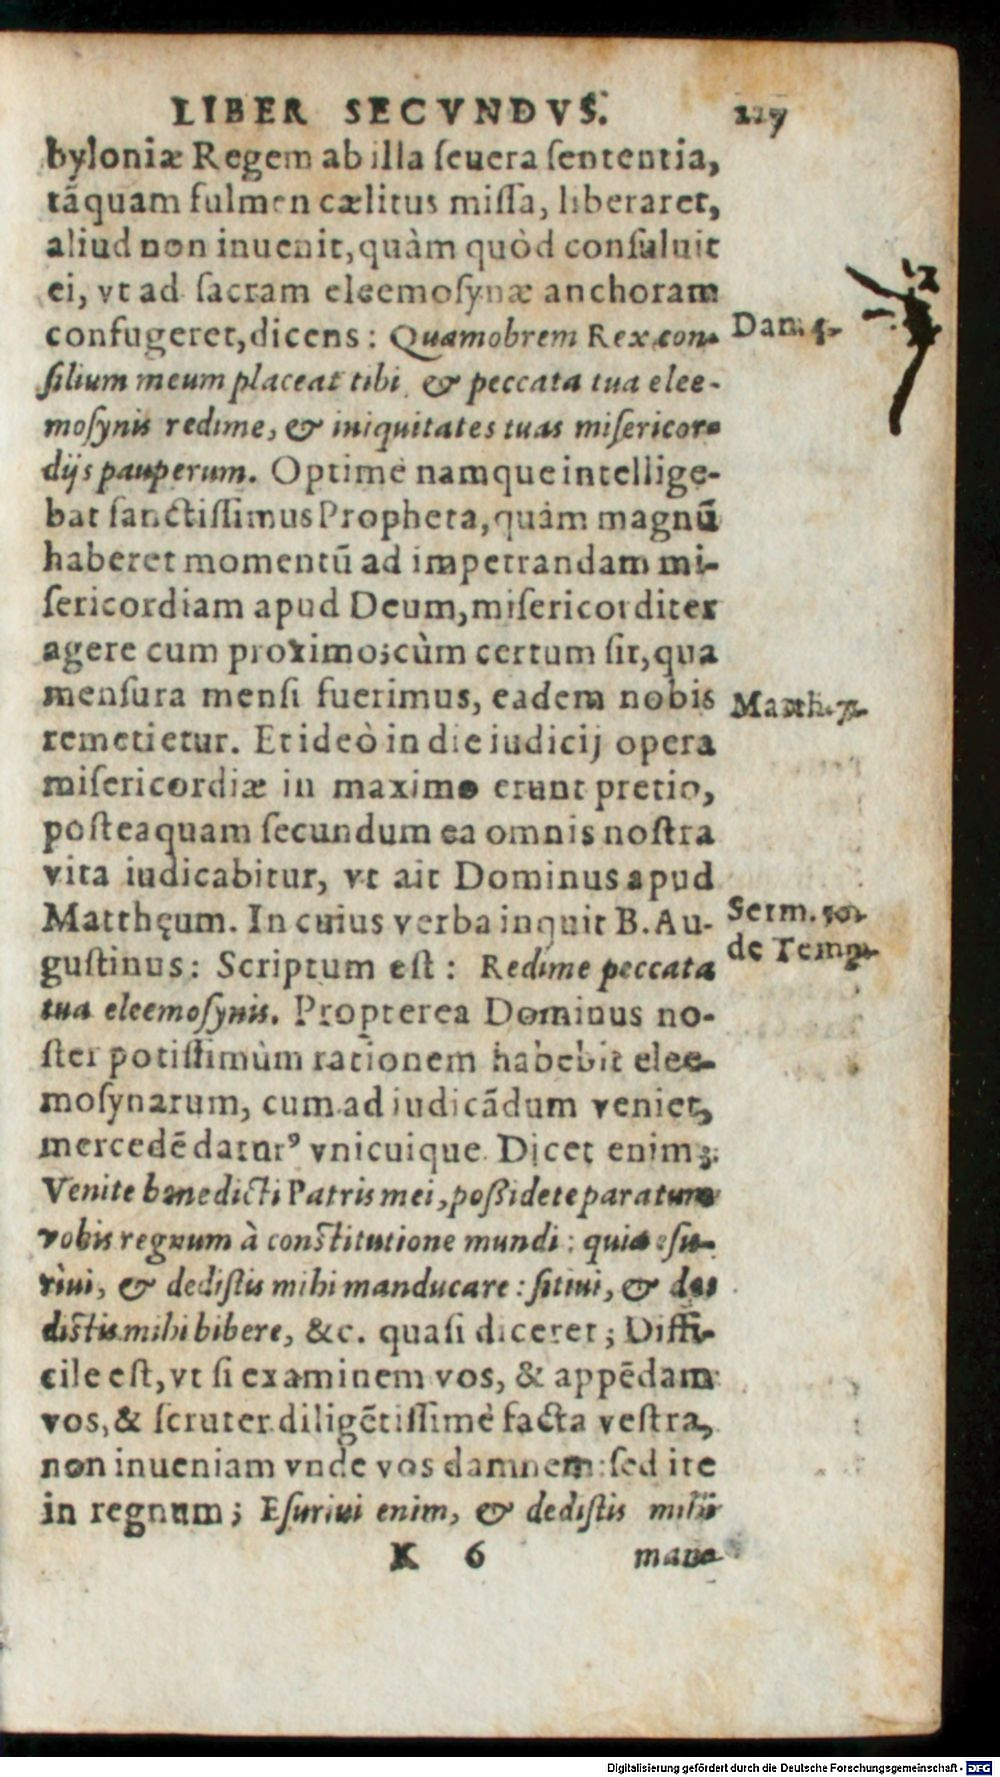 LIBER SECVNDVS. 227
byloniæ Regem ab illa ſeuera ſententia,
tãquam fulmen cælitus miſſa, liberaret,
aliud non inuenit, quàm quòd conſuluit
ei, vt ad ſacram eleemoſynæ anchoram
confugeret, dicens: Quamobrem Rex con- Dan. 4.
ſilium meum placeat tibi, & peccata tua elee-
moſynis redime, & iniquitates tuas miſericor-
dijs pauperum. Optimè namque intellige-
bat ſanctiſſimus Propheta, quàm magnũ
haberet momentũ ad impetrandam mi-
ſericordiam apud Deum, miſericorditer
agere cum proximo; cùm certum ſit, qua
menſura menſi fuerimus, eadem nobis Matth. 7.
remetietur. Et ideò in die iudicij opera
miſericordiæ in maximo erunt pretio,
poſteaquam ſecundum ea omnis noſtra
vita iudicabitur, vt ait Dominus apud
Matthęum. In cuius verba inquit B. Au- Serm.
guſtinus: Scriptum eſt: Redime peccata de Temp.
tua eleemoſynis. Propterea Dominus no-
ſter potiſſimùm rationem habebit elee-
moſynarum, cum ad iudicãdum veniet,
mercedẽ daturꝰ vnicuique. Dicet enim;
Venite benedicti Patris mei, poßidete paratum
vobis regnum à conſtitutione mundi: quia eſu-
riui, & dediſtis mihi manducare: ſitiui, & de-
diſtis mihi bibere, &c. quaſi diceret; Diffi-
cile eſt, vt ſi examinem vos, & appẽdam
vos, & ſcruter diligẽtiſſimè facta veſtra,
non inueniam vnde vos damnem: ſed ite
in regnum; Eſuriui enim, & dediſtis mihi
K 6 man-
Digitalisierung gefördert durch die Deutsche Forschungsgemeinschaft - DFG